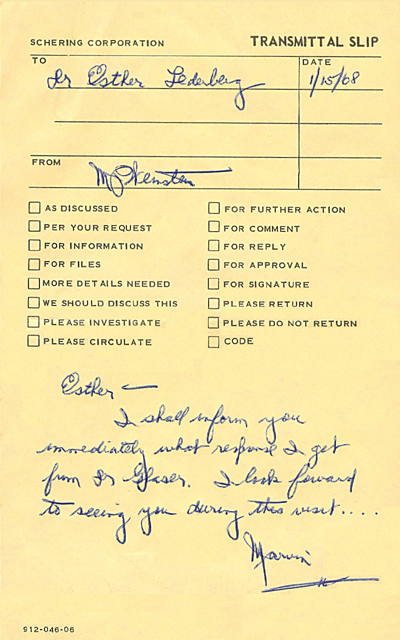 SCHERING CORPORATION TRANSMITTAL SLIP
TO DATE
Dr Esther Lederberg 1/15/68
FROM
M J Weinstein
AS DISCUSSED FOR FURTHER ACTION
PER YOUR REQUEST FOR COMMENT
FOR INFORMATION FOR REPLY
FOR FILES FOR APPROVAL
MORE DETAILS NEEDED FOR SIGNATURE
WE SHOULD DISCUSS THIS PLEASE RETURN
PLEASE INVESTIGATE PLEASE DO NOT RETURN
PLEASE CIRCULATE CODE
Esther —
I shall inform you
immediately what response I get
from Dr Glaser. I look forward
to seeing you during this visit....
Marvin
912-046-06